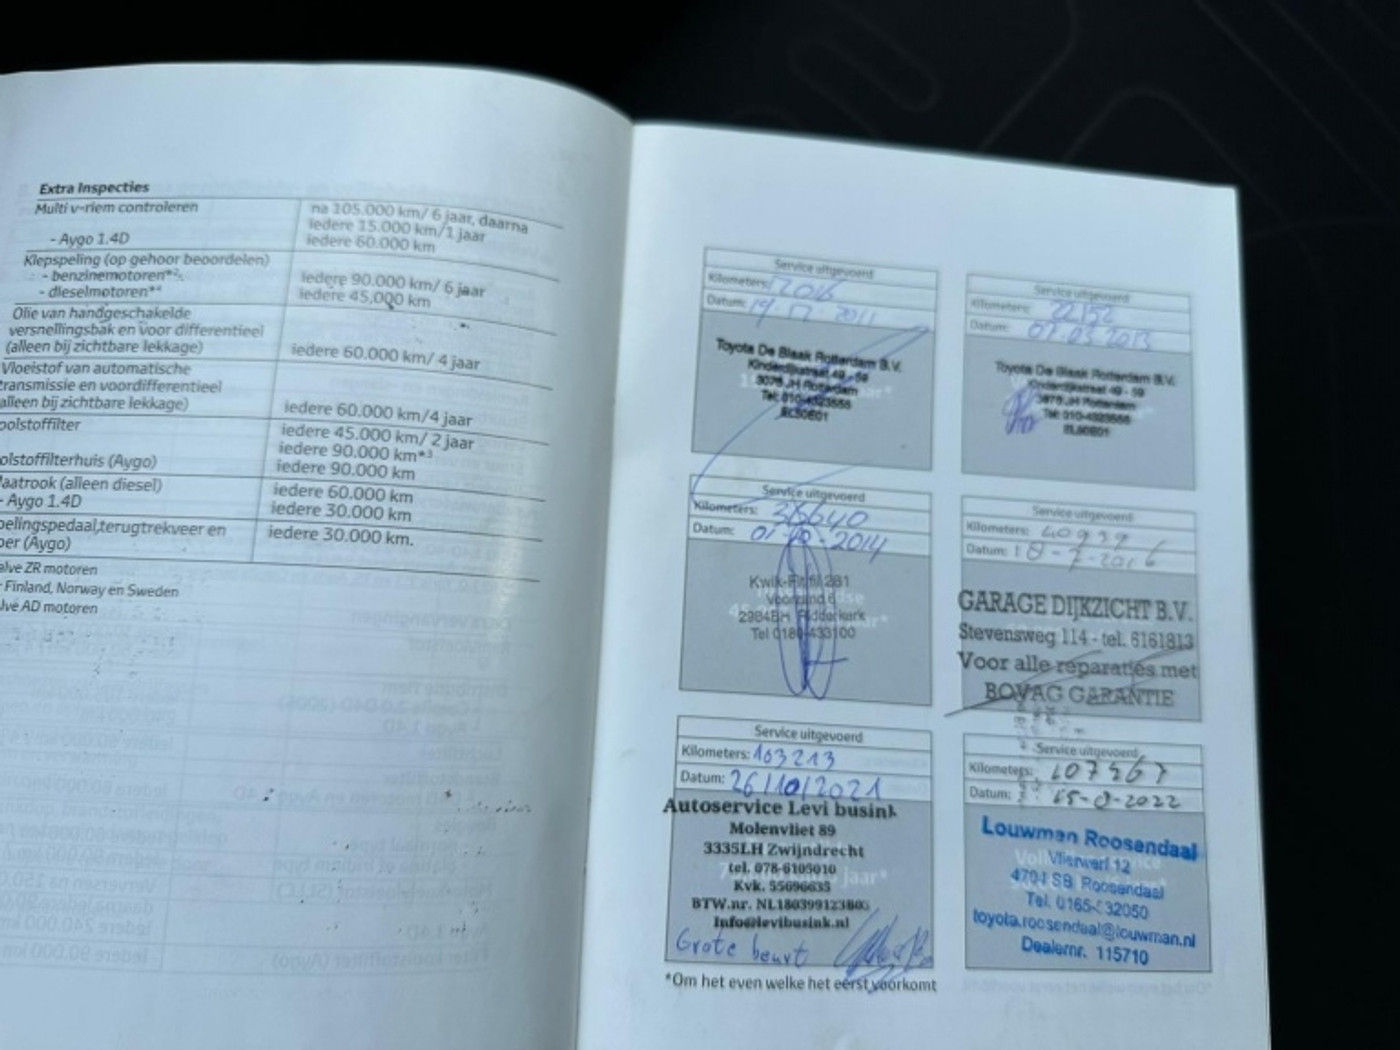 Extra Inspecties
Multi v-riem controleren
na 105.000 km/ 6 jaar, daarna
iedere 15.000 km/1 jaar
- Aygo 1.4D
iedere 60.000 km
Klepspeling (op gehoor beoordelen)
- benzinemotoren*²
iedere 90.000 km/ 6 jaar
- dieselmotoren*⁴
iedere 45.000 km
Olie van handgeschakelde
versnellingsbak en voor differentieel
(alleen bij zichtbare lekkage)
iedere 60.000 km/ 4 jaar
Vloeistof van automatische
transmissie en voordifferentieel
alleen bij zichtbare lekkage)
iedere 60.000 km/4 jaar
oolstoffilter
iedere 45.000 km/ 2 jaar
iedere 90.000 km*³
olstoffilterhuis (Aygo)
iedere 90.000 km
aatrook (alleen diesel)
iedere 60.000 km
- Aygo 1.4D
iedere 30.000 km
pelingspedaal,terugtrekveer en
iedere 30.000 km.
per (Aygo)
alve ZR motoren
r Finland, Norway en Sweden
lve AD motoren
Service uitgevoerd
Kilometers:
Datum:
Toyota De Blaak Rotterdam B.V.
Kinderdijkstraat 49 - 59
3076 JH Rotterdam
Tel: 010-4323555
Service uitgevoerd
Kilometers: 22152
Datum: 07-03-2013
Toyota De Blaak Rotterdam B.V.
Kinderdijkstraat 49 - 59
3076 JH Rotterdam
Tel: 010-4323555
Service uitgevoerd
Kilometers: 36640
Datum: 2014
Kwik-Fit fil 281
Voorzand 6
Ridderkerk
Tel 0180-433100
Service uitgevoerd
Kilometers: 60939
Datum: 18-7-2016
GARAGE DIJKZICHT B.V.
Stevensweg 114 - tel. 6161813
Voor alle reparaties met
BOVAG GARANTIE
Service uitgevoerd
Kilometers: 103213
Datum: 26/10/2021
Autoservice Levi busink
Molenvliet 89
3335LH Zwijndrecht
tel. 078-6105010
Kvk. 55696635
BTW.nr. NL180399123B05
Info@levibusink.nl
Grote beurt
*Om het even welke het eerst voorkomt
Service uitgevoerd
Kilometers: 107467
Datum: 2022
Louwman Roosendaal
Vlierwerf 12
4704 SB Roosendaal
Tel. 0165-532050
toyota.roosendaal@louwman.nl
Dealernr. 115710